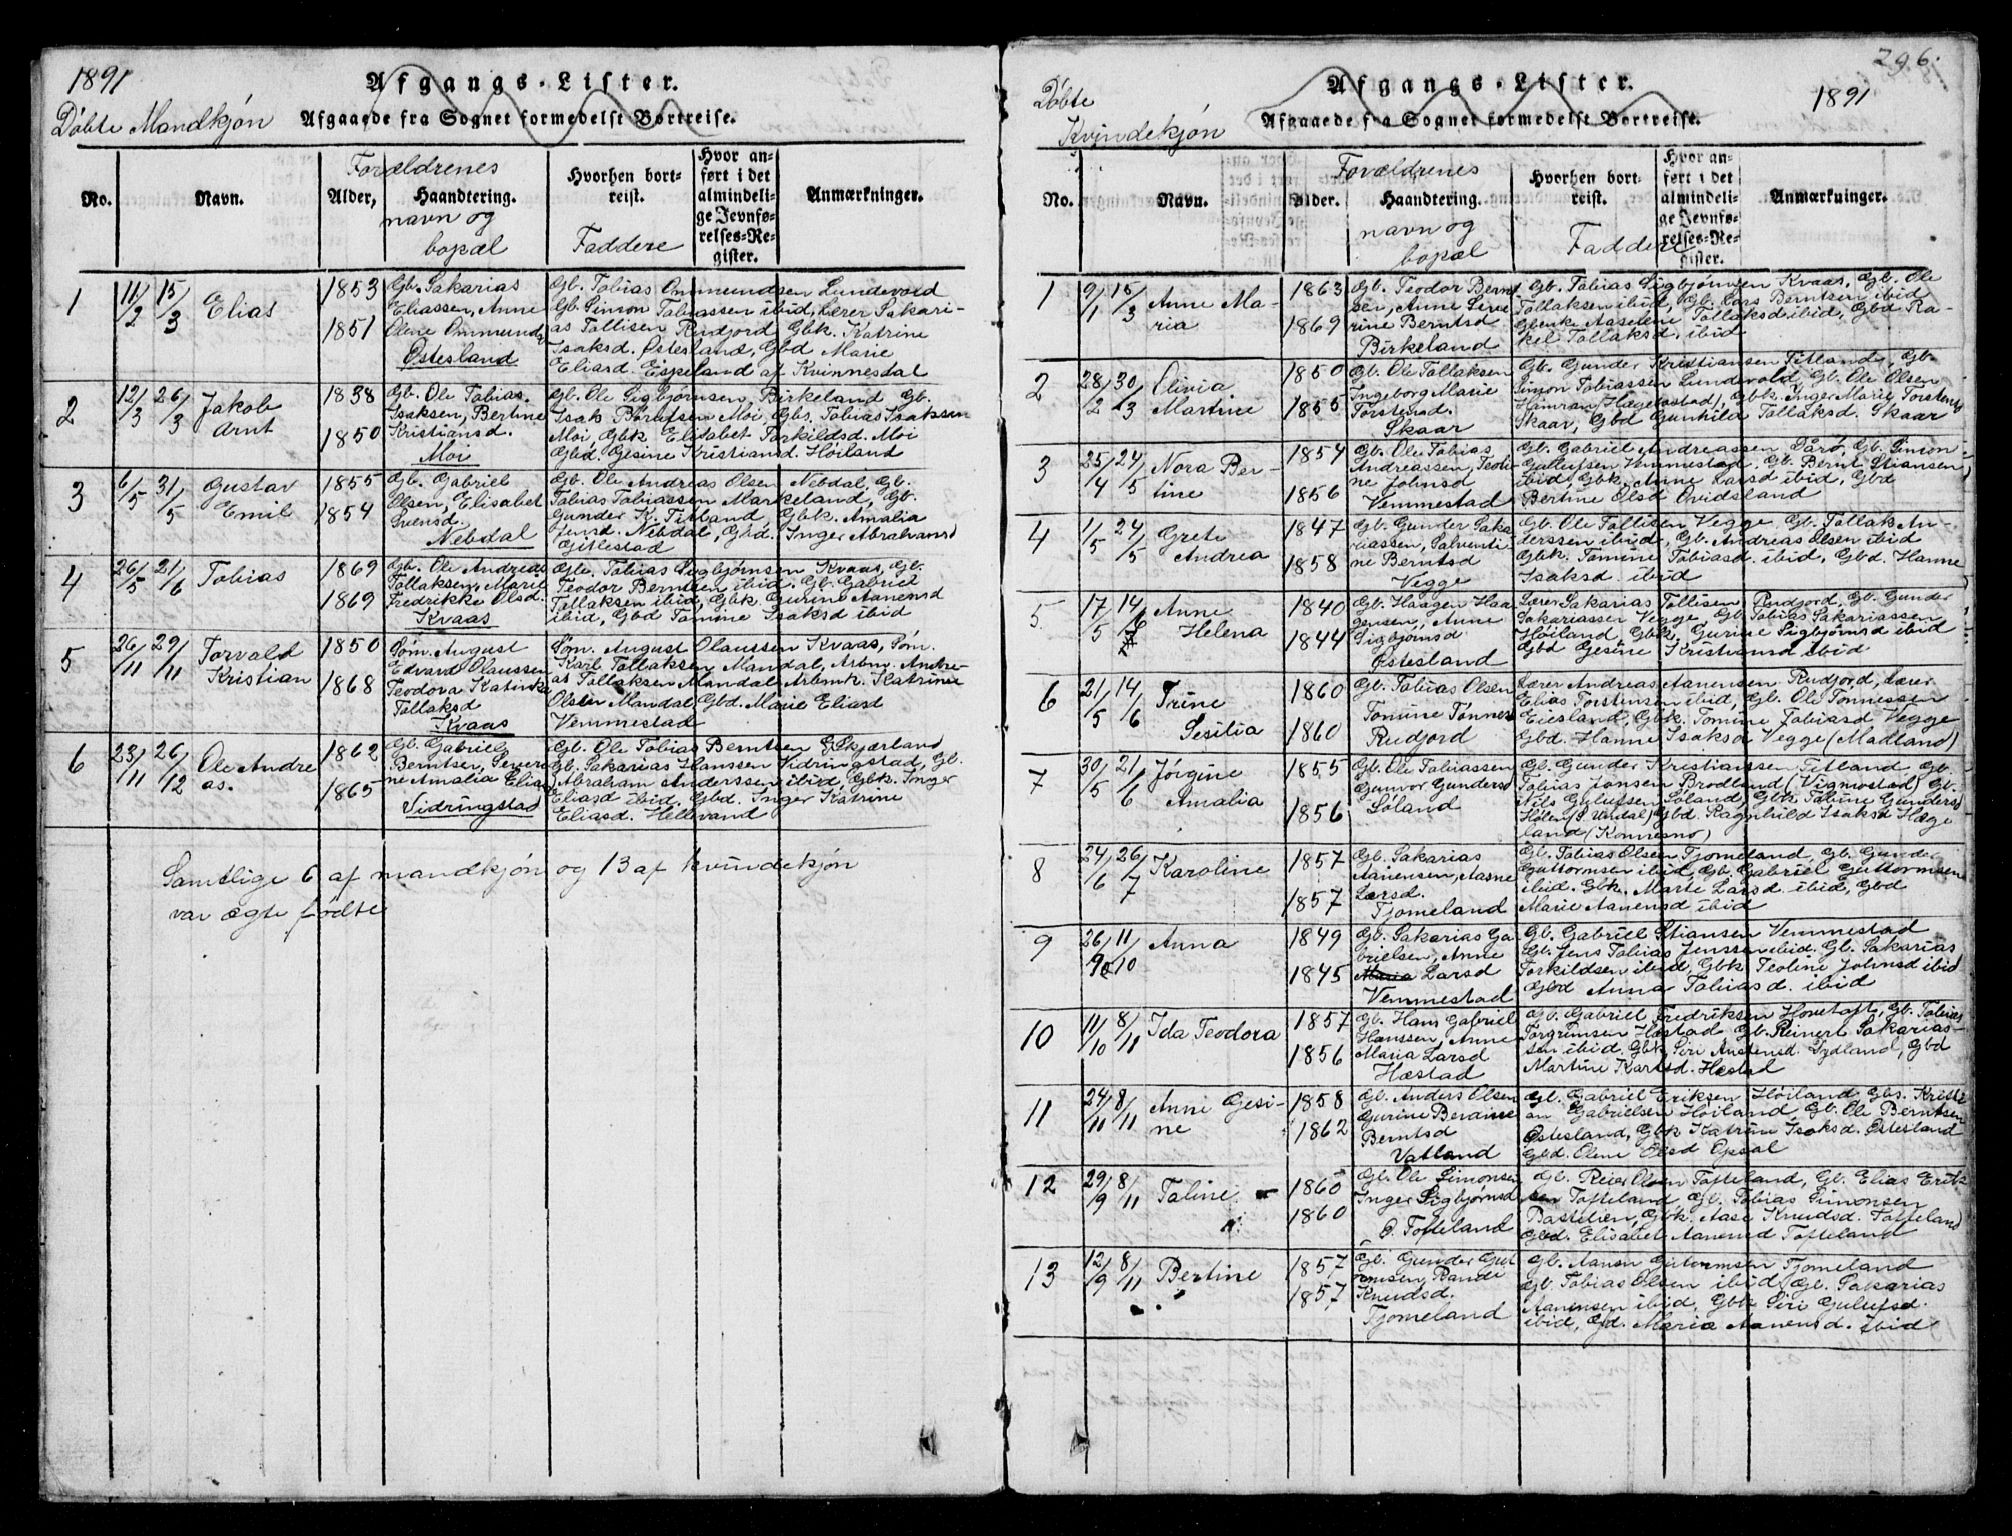 1891
Afgangs-Lister.
Døbte Mandkjøn
Afgaaede fra Sognet formedelst Bortreise.
No.
Navn.
Alder,
Forældrenes
Haandtering.
navn og
bopæl
Hvorhen bort-
reist.
Faddere
Hvor an-
ført i det
almindeli-
ge Jevnfø-
relses-Re-
gister.
Anmærkninger.
1
11/2 15/3
Elias
1853
1851
Gb. Sakarias
Eliassen, Anne
Olene Ommunds
Østesland
Gb. Tobias Ommundsen Lundevold
Gb. Simon Tobiassen ibid, Lærer Sakari-
as Tollisen Rudjord, Gbk. Katrine
Isaksd. Østesland, Gbd Marie
Eliasd. Espeland af Kvinnesdal
2
12/3 26/3
Jakob
Arnt
1838
1850
Gb. Ole Tobias
Isaksen, Bertine
Kristiansd.
Moi
Gb. Ole Sigbjørnsen, Birkeland Gb.
Isak Børudsen Moi, Gbs. Tobias Isaksen
Moi, Gbk. Elisabet Torkildsd. Moi
Gbd. Gesine Kristiansd. Høiland
3
6/5 31/5
Gustav
Emil
1855
1854
Gb. Gabriel
Olsen, Elisabet
Svensd.
Nebdal
Gb. Ole Andreas Olsen Nebdal, Gb.
Tobias Tobiassen Markeland, Gb.
Gunder K. Titland, Gbk. Amalia
Jensd. Nebdal, Gbd. Inger Abrahamsd
Gitlestad
4
26/5 21/6
Tobias
1869
1869
Gb. Ole Andreas
Tollaksen, Marie
Fredrikke Olsd.
Kvaas
Gb. Tobias Sigbjørnsen Kvaas, Gb.
Teodor Berntsen ibid. Gb. Gabriel
Tollaksen ibid, Gbk Gurine Aanensd
ibid, Gbd Tomine Isaksd ibid
5
26/11 29/11
Torvald
Kristian
1850
1868
Søm. August
Edvard Olaussen
Teodora Katinka
Tollaksd
Kvaas
Søm. August Olaussen Kvaas, Søm.
Karl Tollaksen Mandal, Arbm. Andre-
as Tollaksen Mandal Arbmk. Katrine
Olsen Mandal, Gbd. Marie Eliasd
Vemmestad
6
23/11 26/12
Ole Andre
as.
1862
1865
Gb. Gabriel
Berntsen, Severi
ne Amalia Elias
Vidringstad
Gb. Ole Tobias Berntsen Eskjærland
Gb. Sakarias Hanssen Vidringstad, Gb.
Abraham Anderssen ibid, Gbk. Inger
Eliasd ibid. Gbd. Inger Katrine
Eliasd. Hellevand
Samtlige 6 af mandkjøn og 13 af kvindekjøn
var ægte fødte
296.
Døbte
Kvindekjøn
Afgangs-Lister.
1891
Afgaaede fra Sognet formedelst Bortreise.
No.
Navn.
Alder.
Forældrenes
Haandtering.
navn og
bopæl
Hvorhen bort-
reist.
Faddere
Hvor an-
ført i det
almindeli-
ge Jevnfø-
relses-Re-
gister.
Anmærkninger.
1
9/1 15/3
Anne Ma-
ria
1863
1869
Gb. Teodor Bernt
sen, Anne Seve
rine Berntsd
Birkeland
Gb. Tobias Sigbjørnsen Kvaas, Gb. Ole
Tollaksen ibid, Gb. Lars Berntsen ibid,
Gbenke Aaselene Tollaksd ibid, Gbd Ra-
kel Tollaksd. ibid
2
28/2 30/3
Olivia
Martine
1850
1855
Gb. Ole Tollaksen
Ingeborg Marie
Torstensd.
Skaar
Gb. Gunder Kristiansen Titland, Gb.
Simon Tobiassen Lundevold, Gb. Ole Olsen
Hamran (Hægebostad), Gbk. Inger Marie Torstensd
Skaar, Gbd Gunhild Tollaksd. Skaar
3
25/4 24/5
Nora Ber-
tine
1854
1856
Gb. Ole Tobias
Andreassen, Teoli
ne Johnsd
Vemmestad
Gb. Gabriel Andreassen Dårø, Gb. Simon
Gulufsen Vemmestad, Gb. Bernt Stiansen
ibid, Gbk. Anne Larsd ibid, Gbd
Bertine Olsd Ovidsland
4
1/5 24/5
Grete
Andrea
1847
1858
Gb. Gunder Saka
riassen, Salventi
ne Berntsd
Vegge
Gb. Ole Tollisen Vegge, Gb. Tollak An
derssen ibid, Gb. Andreas Olsen ibid
Gbk. Tomine Tobiasd. ibid, Gbd. Hanne
Isaksd. ibid
5
17/5 14/6
Anne
Helena
1840
1844
Gb. Haagen Haa
gensen, Anne
Sigbjørnsd
Østesland
Lærer Sakarias Tollisen Rudjord, Gb. Gunder
Sakariassen Vegge, Gb. Tobias Sakariassen
Høiland, Gbk. Gurine Sigbjørnsd ibid
Gbd Gesine Kristiansd ibid
6
21/5 14/6
Trine
Sesilia
1860
1860
Gb. Tobias Olsen
Tomine Tønnesd
Rudjord
Lærer Andreas Aanensen Rudjord, Lærer
Elias Torstensen ibid, Gb. Ole Tønnessen
Eiesland, Gbk. Tomine Tobiasd Vegge
Gbd. Hanne Isaksd Vegge (Madland)
7
30/5 21/6
Jørgine
Amalia
1855
1856
Gb. Ole Tobiassen
Gunvor Gundersd
Søland
Gb. Gunder Kristianssen Titland Gb.
Tobias Jansen Brodland (Vigmostad) Gb.
Nils Gulufsen Søland, Gbk Tobine Gundersd
Hølen (S. Undal) Gbd. Ragnhild Isaksd Hæge
land (Konnesmo)
8
24/6 26/7
Karoline
1857
1857
Gb. Sakarias
Aanensen, Aasne
Larsd.
Tjomeland
Gb. Tobias Olsen Tjomeland, Gb. Gunder
Guttormsen ibid, Gb. Gabriel Guttormsen
ibid. Gbk. Marte Larsd. ibid, Gbd
Marie Aanensd ibid
9
26/9 11/10
Anna
1849
1845
Gb. Sakarias Ga
brielsen, Anne
Maria Larsd
Vemmestad
Gb. Gabriel Stiansen Vemmestad
Gb. Jens Tobias Jenssen ibid. Gb. Sakarias
Torkildsen ibid, Gbk Teoline Johnsd ibid
Gbd Anna Tobiasd. ibid
10
11/10 8/11
Ida Teodora
1857
1856
Gb. Hans Gabriel
Hanssen, Anne
Maria Larsd
Hæstad
Gb. Gabriel Fredriksen Hovtoft, Gb. Tobias
Torgrimsen Hæstad Gb. Reinert Sakarias-
sen ibid. Gbk Siri Anstensd. Dydland, Gbd
Martine Karlsd. Hæstad
11
24/11 8/11
Anne Gesi-
ne
1858
1862
Gb. Anders Olsen
Gurine Berdine
Berntsd
Vatland
Gb. Gabriel Eriksen Høiland, Gbs. Kristi
an Gabrielsen Høiland, Gb. Ole Berntsen
Østesland, Gbk Katrine Isaksd. Østesland
Gbd. Olene Olsd Opsal
12
29/9 8/11
Taline
1860
1860
Gb. Ole Simonsen
Inger Sigbjørnsd
O. Tofteland
Gb. Reier Olsen Tofteland, Gb. Elias Erik
sen Tofteland Gb. Tobias Simonsen
Bastelien, Gbk. Aase Knudsd. Tofteland
Gbd. Elisabet Aanensd Tofteland
13
12/9 8/11
Bertine
1857
1857
Gb. Gunder Gut
ormsen, Rande
Knudsd.
Tjomeland
Gb. Aanen Gutormsen Tjomeland
Gb. Tobias Olsen ibid, Gb. Sakarias
Aanensen ibid, Gbk Siri Gulufsd.
ibid, Gd. Maria Aanensd. ibid